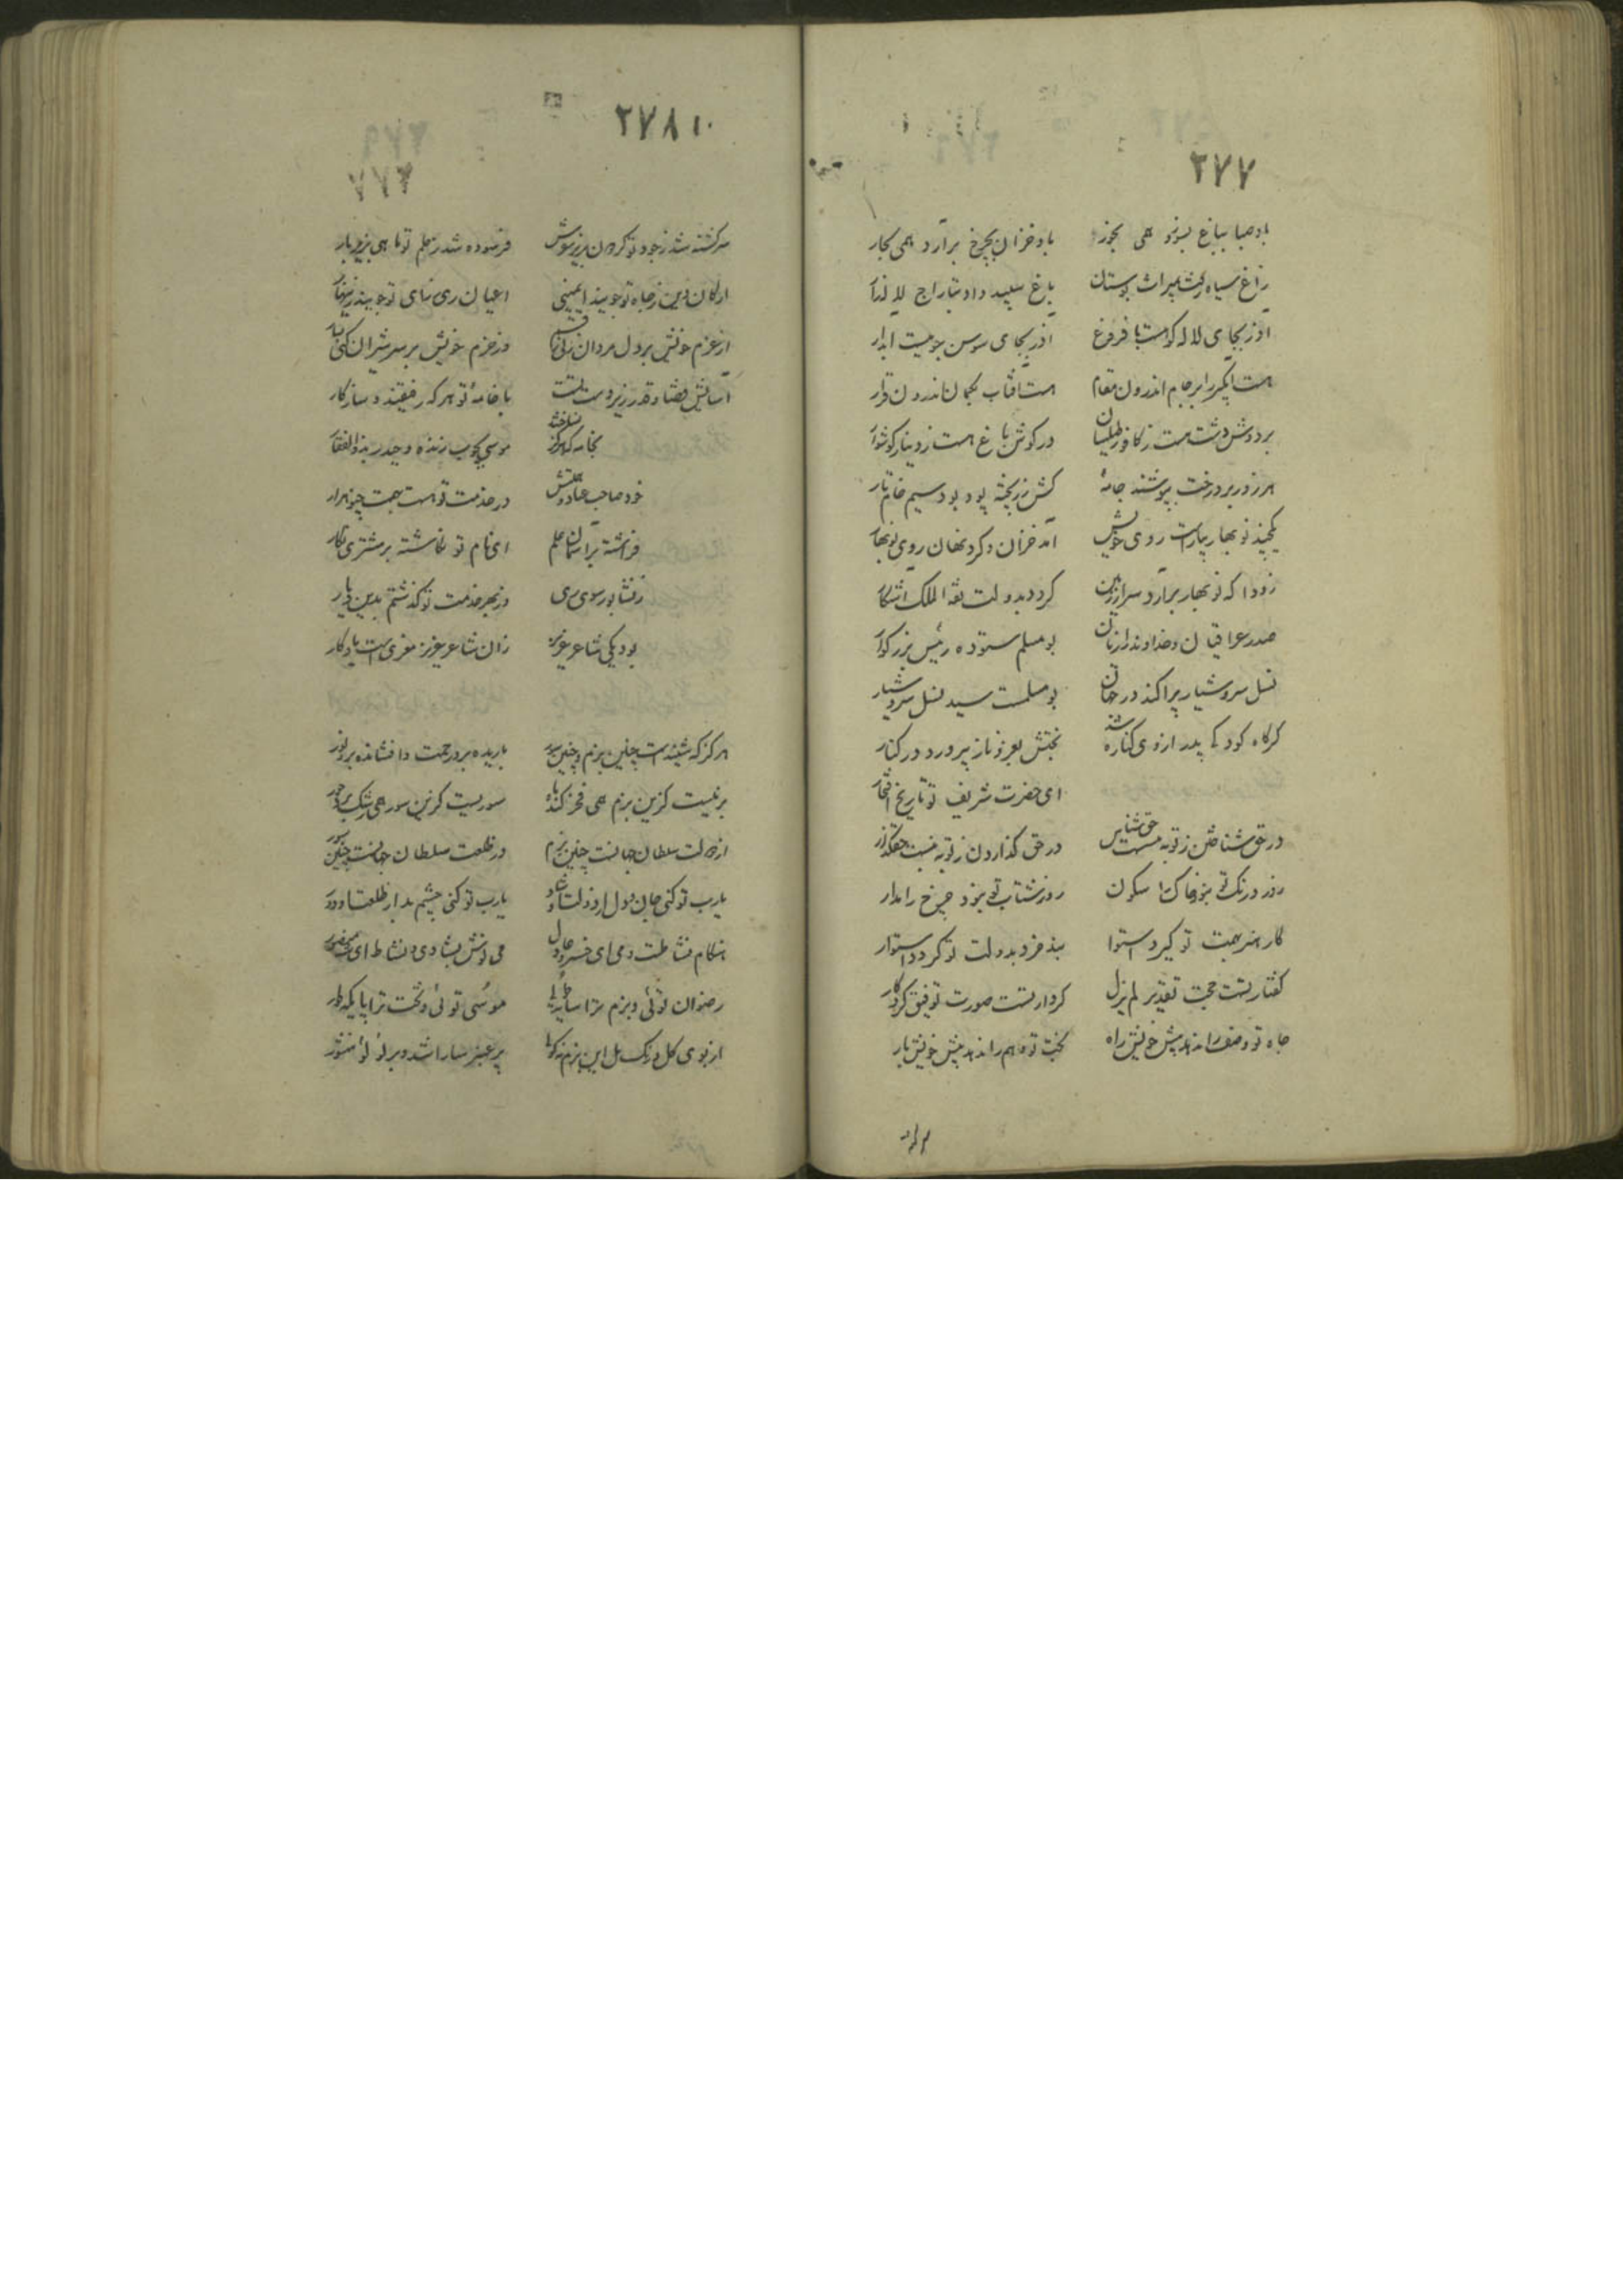 ۲۷۷
باد صبا بباغ بسوزد همی بخور باد خزان بچرخ برآرد همی بخار
زاغ سیاه گشت بمیراث بوستان باغ سپید داد بتاراج لاله زار
آذر بجای لاله که هست با فروغ آذر بجای سوسن جوییست آبدار
هست آبگیر را بر جام اندرون مقام هست آفتاب کمان اندرون قرار
بر دوش دشت هست ز کافور طیلسان در گوش باغ هست ز دینار گوشوار
هر روز بر درخت بپوشند جامهٔ کش زر پخته پود بود سیم خام تار
یکچند نوبهار بیاراست روی خویش آمد خزان و کرد نهان روی نوبهار
زودا که نوبهار برآرد سر از زمین گردد بدولت ثقة الملک آشکار
صدر عراقیان و خداوند رازیان بومسلم ستوده رئیس بزرگوار
نسل سروشیار پراکند در جهان بومسلمست سید نسل سروشیار
گرگاه کودکی پدر از وی کناره شد بختش بعز و ناز بپرورد در کنار
ای حضرت شریف تو تاریخ افتخار
در حق شناختن ز تو به نیست حق شناس در حق گذاردن ز تو به نیست حقگذار
روز درنگ تو بنوز خاک را سکون روز شتاب تو بنوزد چرخ را مدار
کار هنر بهمت تو گیرد استوا بند خرد بدولت تو گردد استوار
گفتار تست حجت تقدیر لم یزل کردار تست صورت توفیق کردگار
جاه تو وصف را ندهد پیش خویش راه بخت تو وهم را ندهد پیش خویش بار
۲۷۸
سرگشته شد ز جود تو گردون تیزپوش فرسوده شد ز حلم تو ماهی بزیر بار
ارکان دین ز جاه تو جویند ایمنی اعیان ری ز رای تو جویند زینهار
از عزم خویش بر دل مردان زنی وز حزم خویش بر سر شیران کنی
آسایش قضا و قدر زیر دست تست با خامهٔ تو هر که رفیقند و سازگار
بخامه که هرگز نساخت موسی بچوب زنده و حیدر بذوالفقار
خود صاحب عباد در خدمت تو هست بهمت چو نهرار
فراشته بر آسمان علم ای نام تو نگاشته بر مشتری نگار
ز نشابور سوی ری وز بهر خدمت تو گذشتم بدین دیار
بود یکی شاعر عزیز زان شاعر عزیز معزی است یادگار
هرگز که شنیدست چنین بزم و چنین سور باریده بر و رحمت و افشانده بر و نور
بزمیست کزین بزم همی فخر کند ماه سوریست کزین سور همی رشک برد حور
از دولت سلطان جهانست چنین بزم در طلعت سلطان جهانست چنین سور
یارب تو کنی جان و دل از دولت او شاد یارب تو کنی چشم بد از طلعت او دور
هنگام نشاطست و می ای خسرو عادل می نوش بشادی و نشاط ای شه منصور
رضوان توئی و بزم ترا سایهٔ طوبی موسی توئی و تخت ترا پایگه طور
از بوی گل و رنگ مل این بزم تو گویا پر عنبر سارا شد و پر لؤلؤ منثور